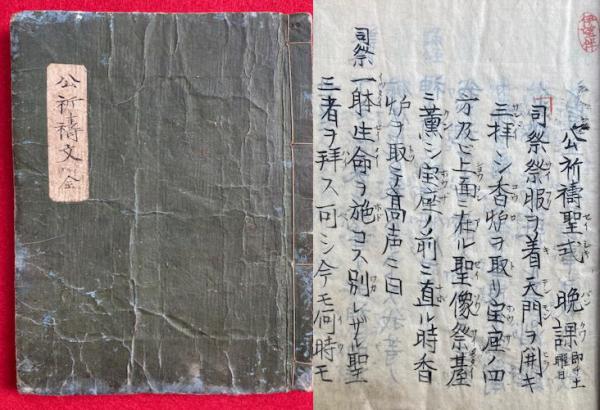 公祈禱文 全
公祈禱聖式 晩課 即チ土曜日
司祭祭暇ヲ着天門ヲ開キ
三拝シ香炉ヲ取リ宝座ノ四
方及ビ上面ニ在ル聖像祭基
ニ薫シ宝座ノ前ニ直ル時香
炉ヲ取ミテ高声ニ曰
司祭 一躰生命ヲ施コス別レザル聖
三者ヲ拝ス可シ今モ何時モ